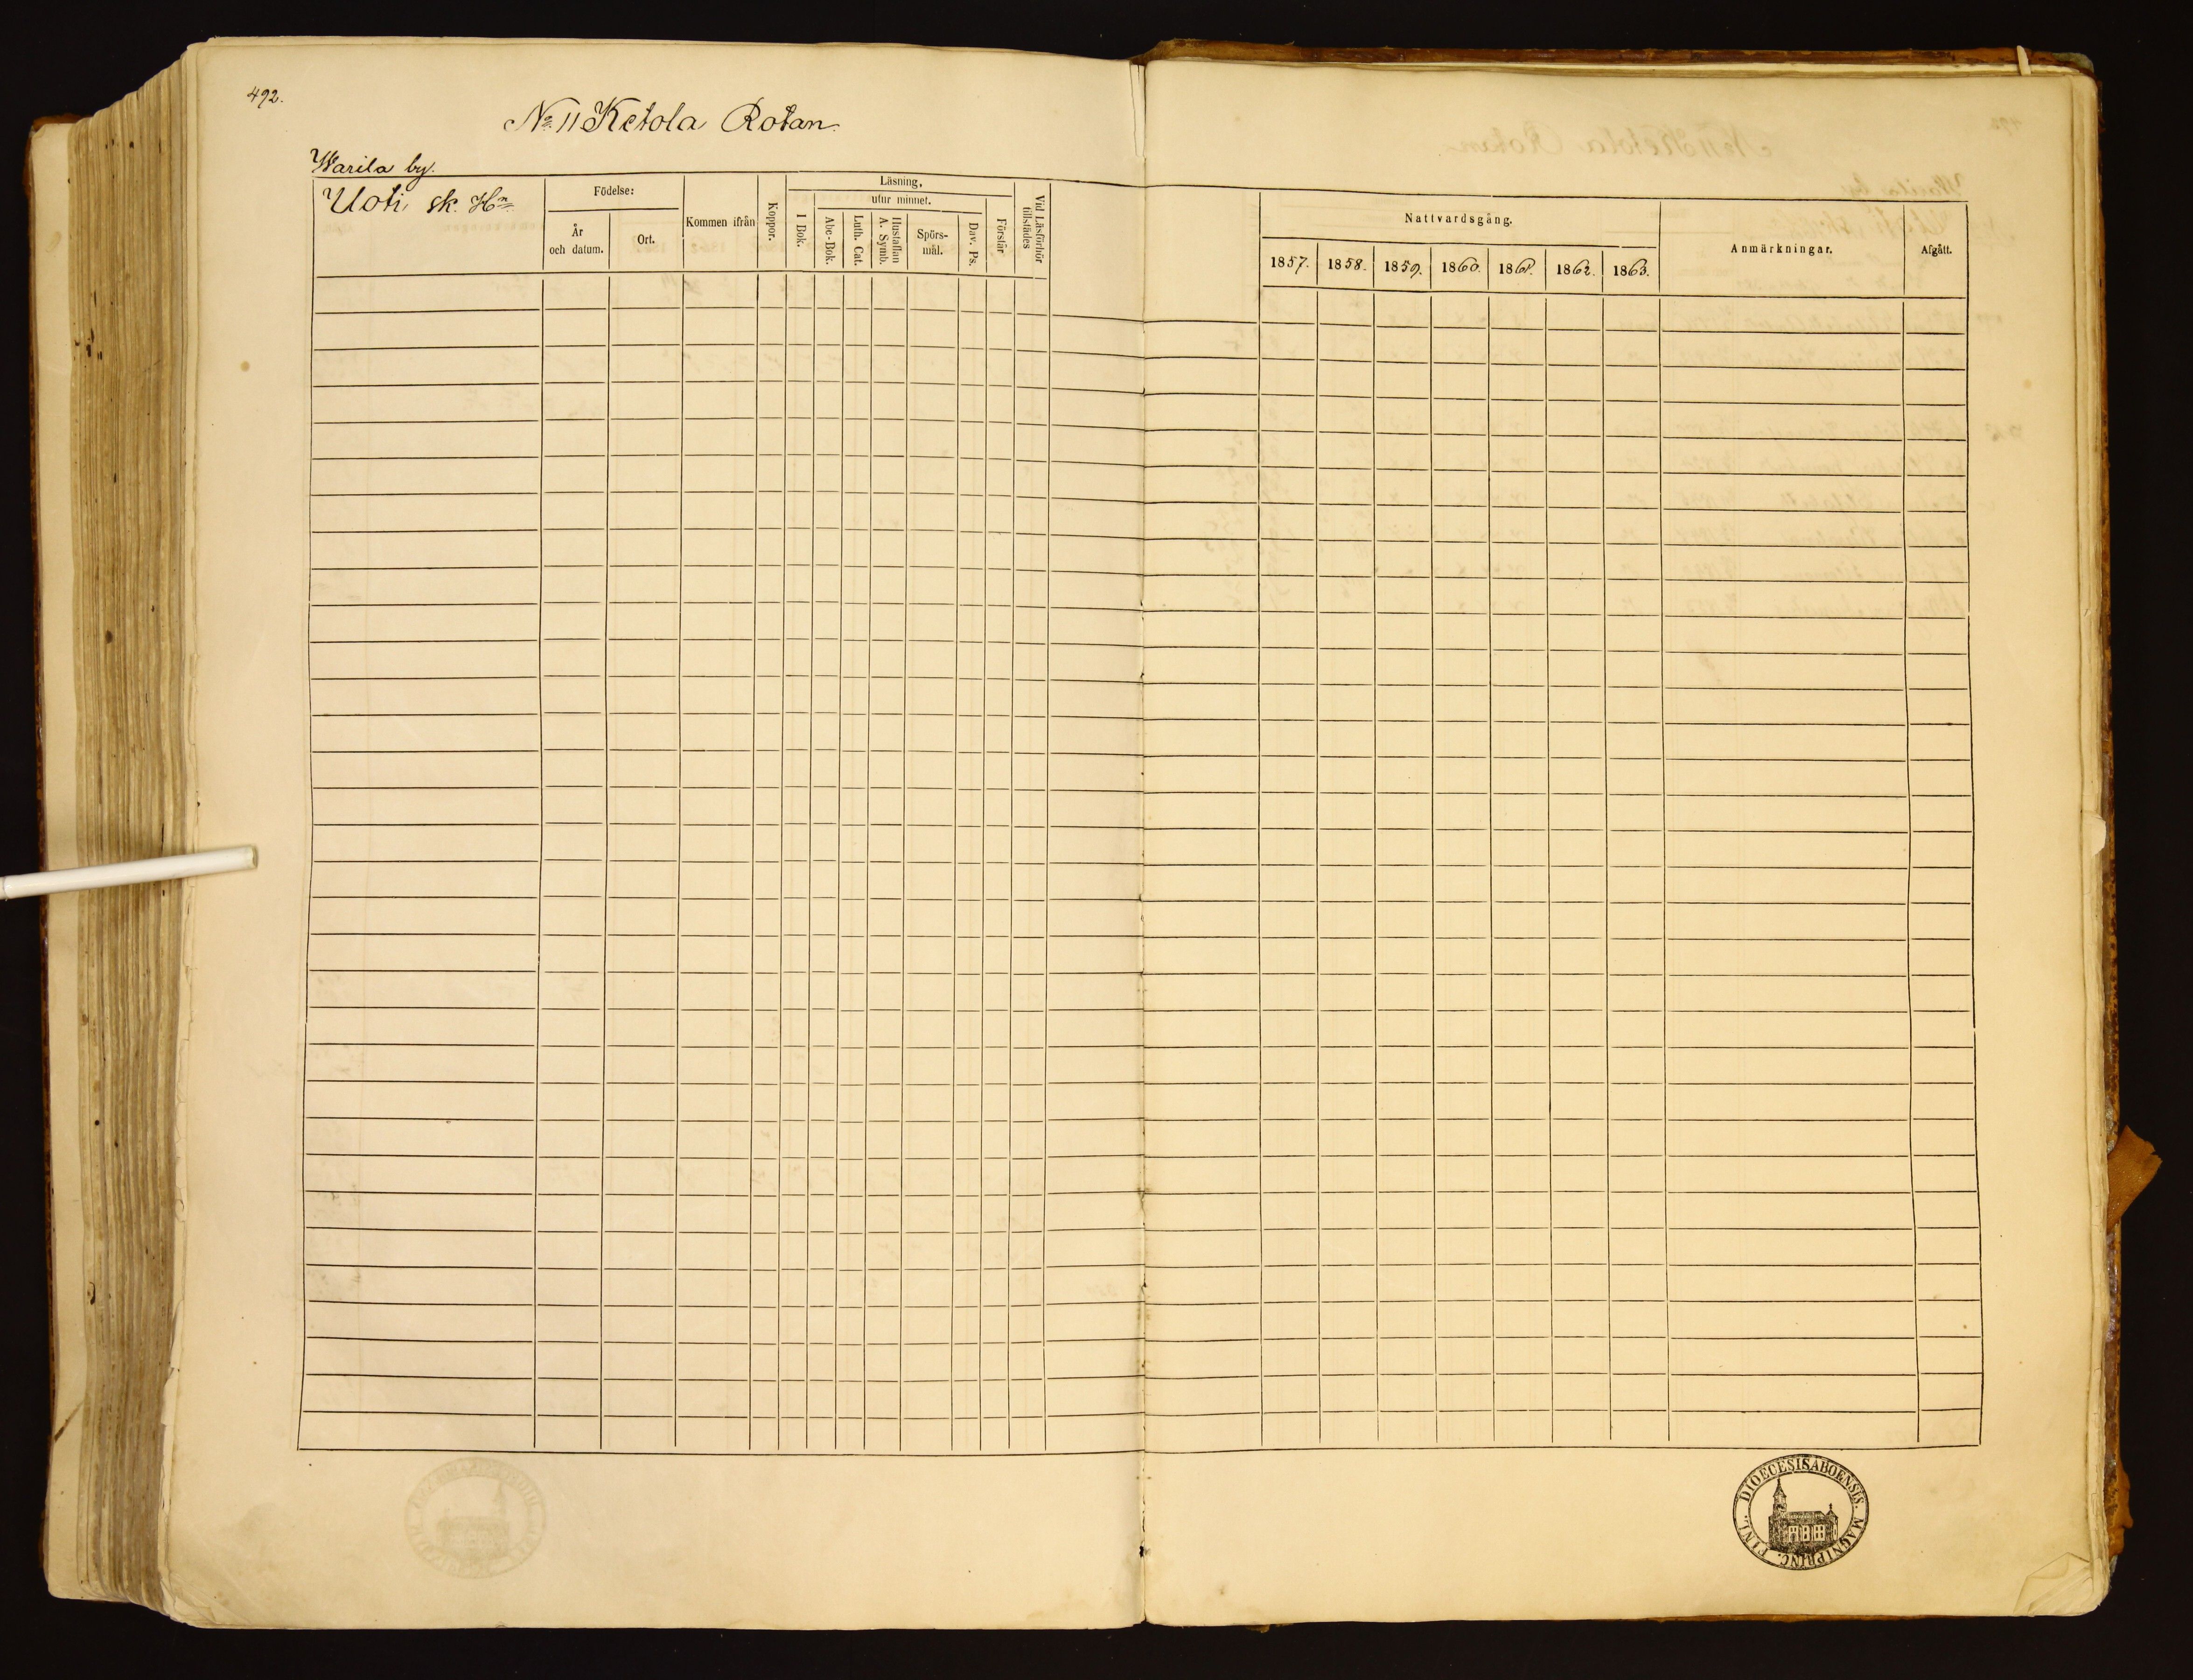 492.
No 11 Ketola Rotan.
Warila by.
Uoti sk. Hn
Födelse:
År och datum.
Ort.
Kommen ifrån
Koppor.
Läsning,
utur minnet.
I Bok.
Abc-Bok.
Luth. Cat.
Hustaflan A. Symb.
Spörs-mål.
Dav. Ps.
Förstår
Vid Läsförhör tillstädes
Nattvardsgång.
1857. 1858. 1859. 1860. 1861. 1862. 1863.
Anmärkningar.
Afgått.
DIOECESIS ABOENSIS. MAGNI PRINC. FINL.